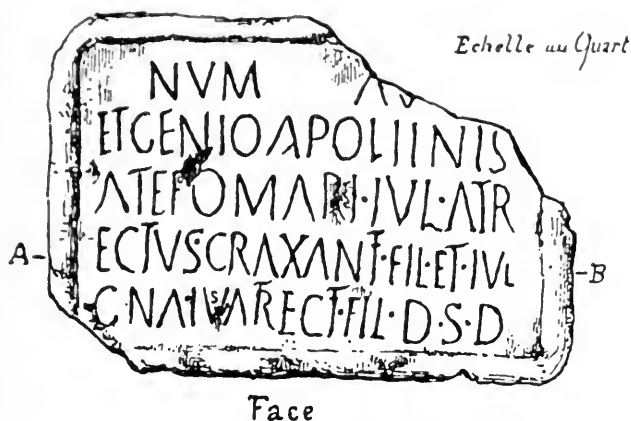 Echelle au Quart
NVM AV
ET GENIO APOLIINIS
ATEPOMARI·IVL·ATR
A
ECTVS·CRAXANT·FIL·ET·IVL
B
FIL·D·S·D
Face